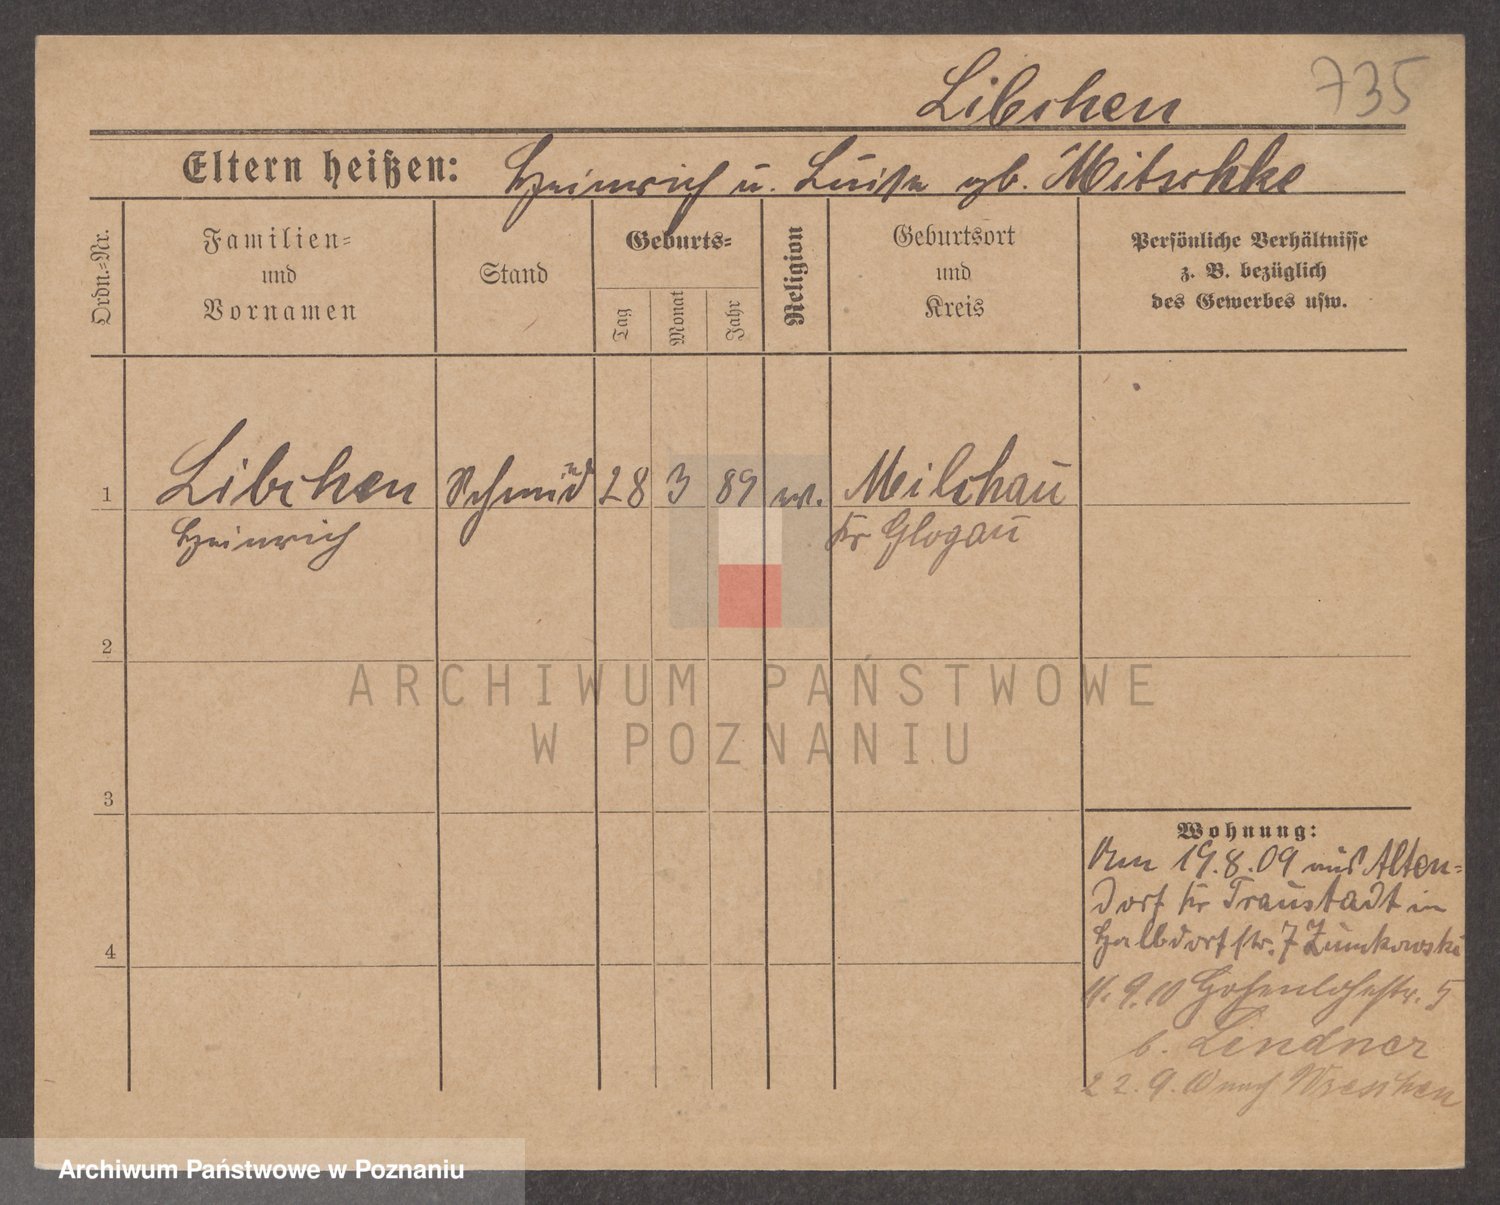 Libchen 735
Eltern heißen: Heinrich u. Luise gb. Mitschke
Ordn.=Nr.
Familien=
und
Vornamen
Stand
Geburts=
Tag
Monat
Jahr
Religion
Geburtsort
und
Kreis
Persönliche Verhältnisse
z. B. bezüglich
des Gewerbes usw.
1 Libchen Schmied 28 3 89 Milchau
Heinrich Kr Glogau
2
3
4
Wohnung:
Am 19.8.09 aus Alten=
dorf Kr Fraustadt in
Halbdorfstr. 7
9.10 Hohenlohestr. 5
b. Lindner
22.9.10 nach Wreschen
ARCHIWUM PAŃSTWOWE
W POZNANIU
Archiwum Państwowe w Poznaniu